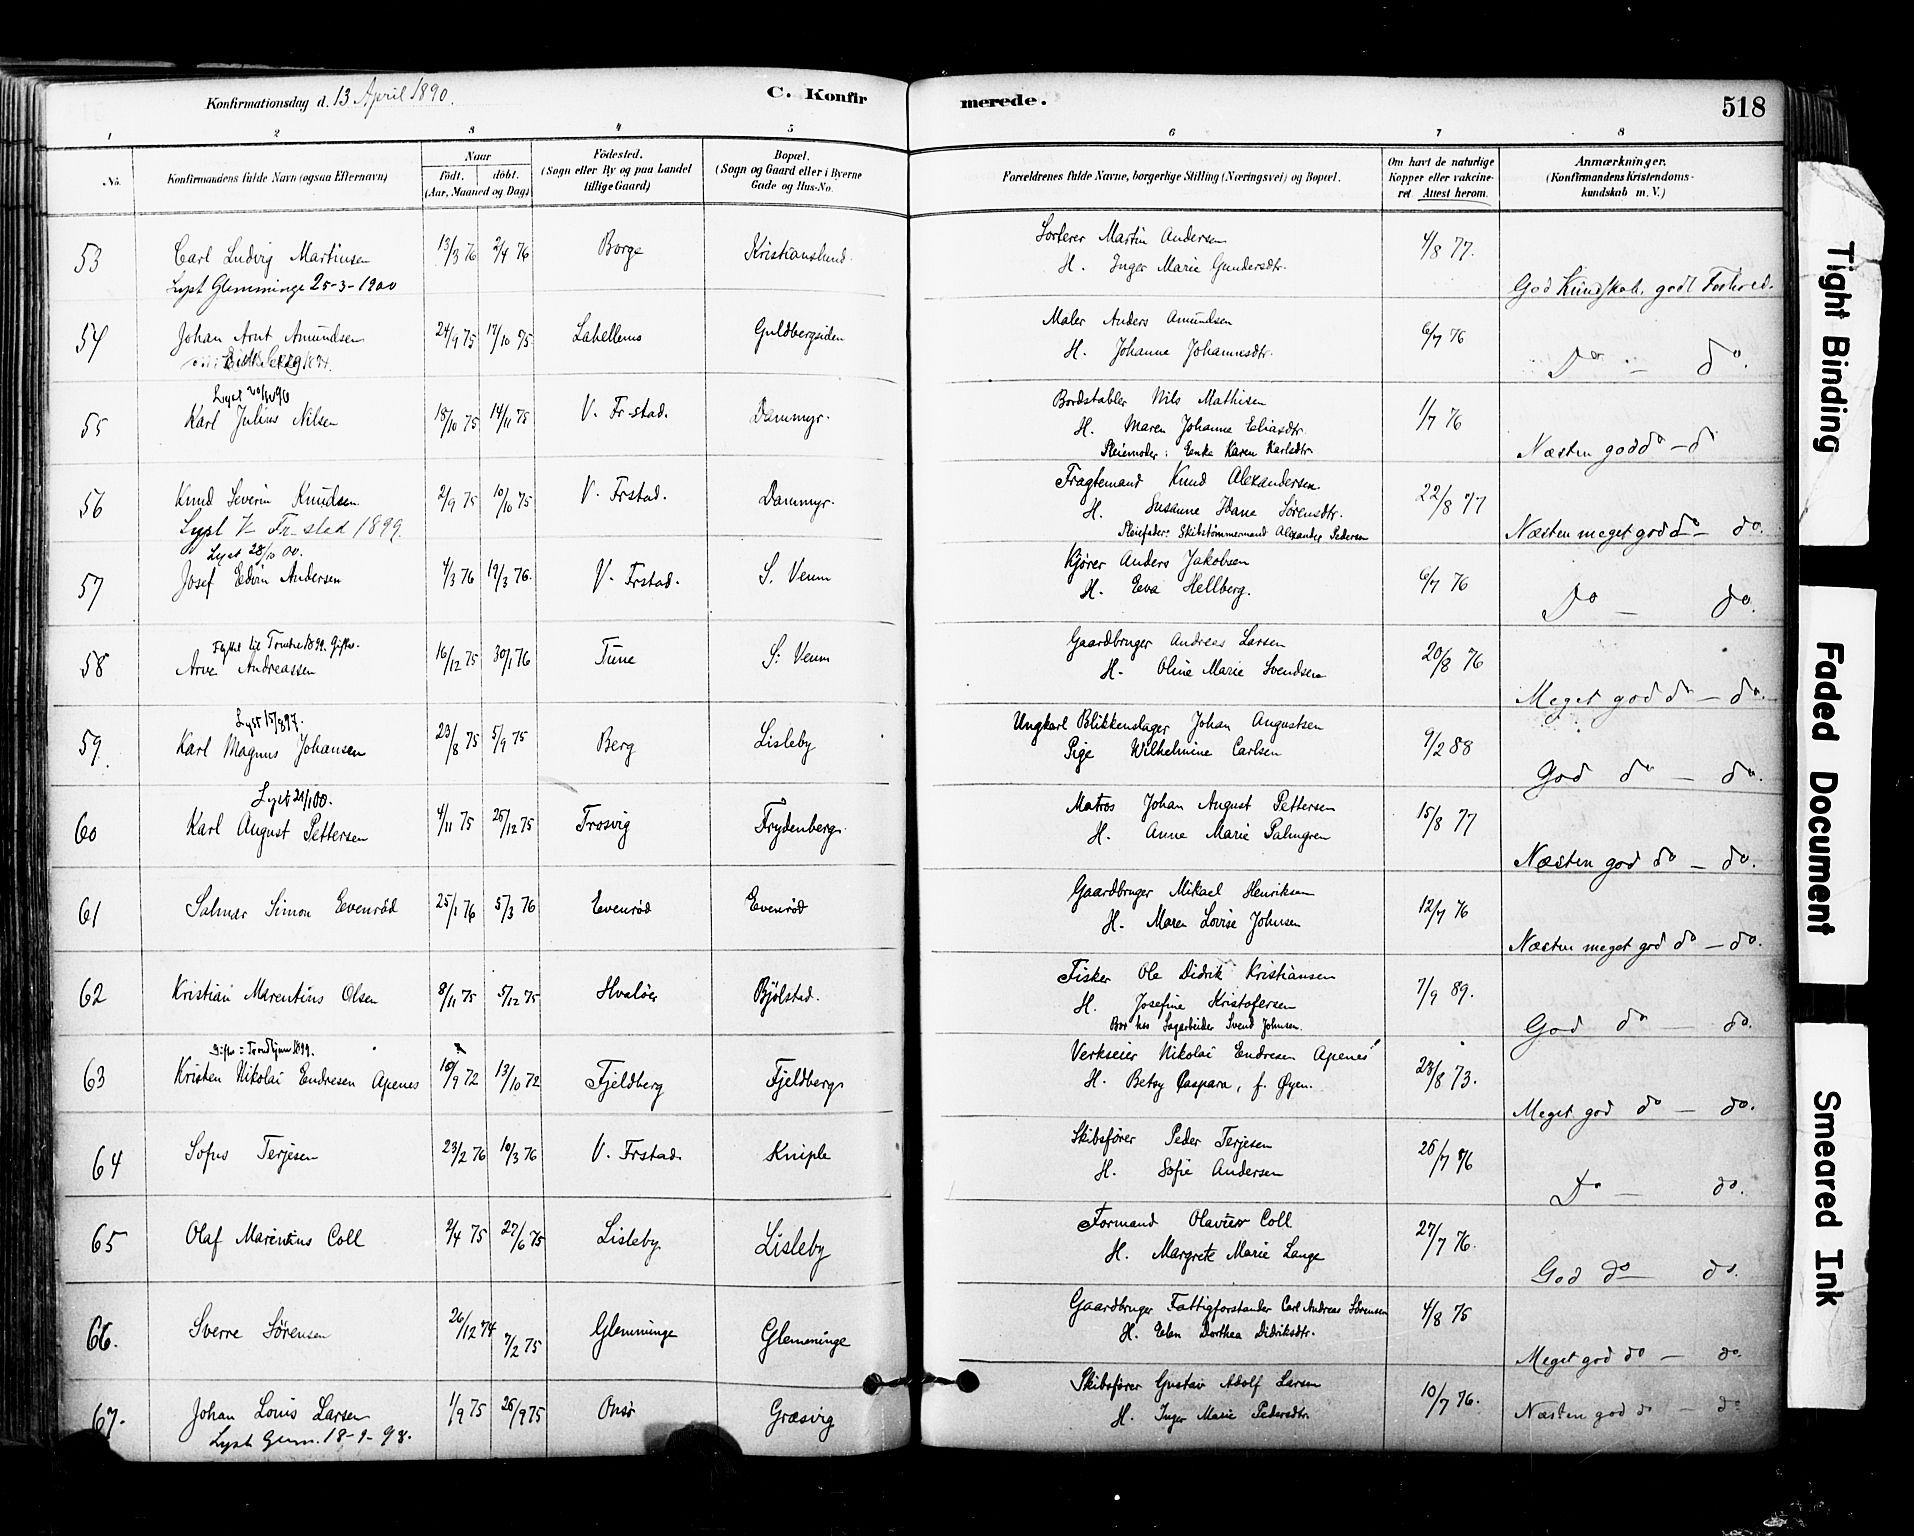 Konfirmationsdag d. 13 April 1890.
C. Konfirmerede.
518
1 2 3 4 5 6 7 8
No.
Konfirmandens fulde Navn (ogsaa Efternavn)
Naar
födt. döbt.
(Aar, Maaned og Dag)
Födested.
(Sogn eller By og paa Landet
tillige Gaard)
Bopæl.
(Sogn og Gaard eller i Byerne
Gade og Hus-No.
Forældrenes fulde Navne, borgerlige Stilling (Næringsvei) og Bopæl.
Om havt de naturlige
Kopper eller vakcine-
ret Attest herom.
Anmærkninger.
(Konfirmandens Kristendoms-
kundskab m. V.)
53 Carl Ludvig Martinsen 13/3 76 2/4 76 Borge Kristianslund. Sorterer Martin Andersen 4/8 77.
Lyst Glemminge 25-3-1900 H. Inger Marie Gundersdtr. God Kundskab, godt Forhold.
54 Johan Arnt Amundsen 24/9 75 17/10 75 Lahellemo Guldbergsiden Maler Anders Amundsen 6/7 76
H. Johanne Johannesdtr. Do do.
Lyst 20/10 96
55 Karl Julius Nilsen 15/10 75 14/11 75 V. Fr-stad. Dammyr. Bordstabler Nils Mathisen 1/7 76
H. Maren Johanne Eliasdtr.
Pleiemoder: Enke Karen Karlsdtr. Næsten god do - d
56 Knud Severin Knudsen 2/9 75 10/10 75 V. Frstad. Dammyr. Fragtemand Knud Alexandersen 22/8 77
Lyst V Fr stad 1899. H. Susanne Idane Sørensdtr.
Pleiefader: Skibstømmermand Alexander Pedersen Næsten meget god do - do.
Lyst 28/10 00.
57 Josef Edvin Andersen 4/3 76 19/3 76. V. Frstad. S. Veum Kjører Anders Jakobsen 6/7 76
H. Eva Hellberg. Do - do.
Flyttet til Trondhe 1899. Giftes.
58 Arve Andreassen 16/12 75 30/1 76 Tune S. Veum Gaardbruger Andreas Larsen 20/8 76
H. Oline Marie Svendsen Meget god do - do.
Lyst 15/8 97.
59. Karl Magnus Johansen 23/8 75 5/9 75 Berg Lisleby Ungkarl Blikkenslager Johan Augustsen 9/2 88
Pige Wilhelmine Carlsen God do - do.
Lyst 21/1 00.
60 Karl August Pettersen 4/11 75 25/12 75 Trosvig Frydenberg. Matros Johan August Pettersen 15/8 77
H. Anne Marie Palmgren Næsten god do - do.
61 Salmar Simon Evenrød 25/1 76 5/3 76 Evenrød Evenrød Gaardbruger Mikael Henriksen 12/7 76
H. Maren Lovise Johnsen Næsten meget god do - do.
62 Kristian Marentius Olsen 8/11 75 5/12 75 Hvaløer Bjölstad. Fisker Ole Didrik Kristiansen 7/9 89.
H. Josefine Kristofersen
Bor hos Sagarbeider Svend Johnsen. God do - do.
Giftes i Trondhjem 1899.
63 Kristen Nikolai Endresen Apenes 10/9 72 13/10 72 Fjeldberg Fjeldberg Verkseier Nikolai Endresen Apenes 23/8 73.
H. Betsy Caspara, f. Øyen. Meget god do - do.
64 Sofus Terjesen 23/2 76 19/3 76 V. Frstad. Kniple Skibsfører Peder Terjesen 26/7 76
H. Sofie Andersen Do - do.
65 Olaf Marentius Coll 2/4 75 27/6 75 Lisleby. Lisleby Formand Olavus Coll 27/7 76.
H. Margrete Marie Lange God do - do.
66. Sverre Sörensen 26/12 74 7/2 75 Glemminge Glemminge Gaardbruger Fattigforstander Carl Andreas Sörensen 4/8 75
H. Elen Dorthea Didriksdtr. Meget god do - do.
67. Johan Louis Larsen 1/9 75 26/9 75 Onsö Græsvig Skibsfører Gustav Adolf Larsen 10/7 76.
Lyst Glem. 18-9-98. H. Inger Marie Pedersdtr. Næsten god do - do
Tight Binding
Faded Document
Smeared Ink